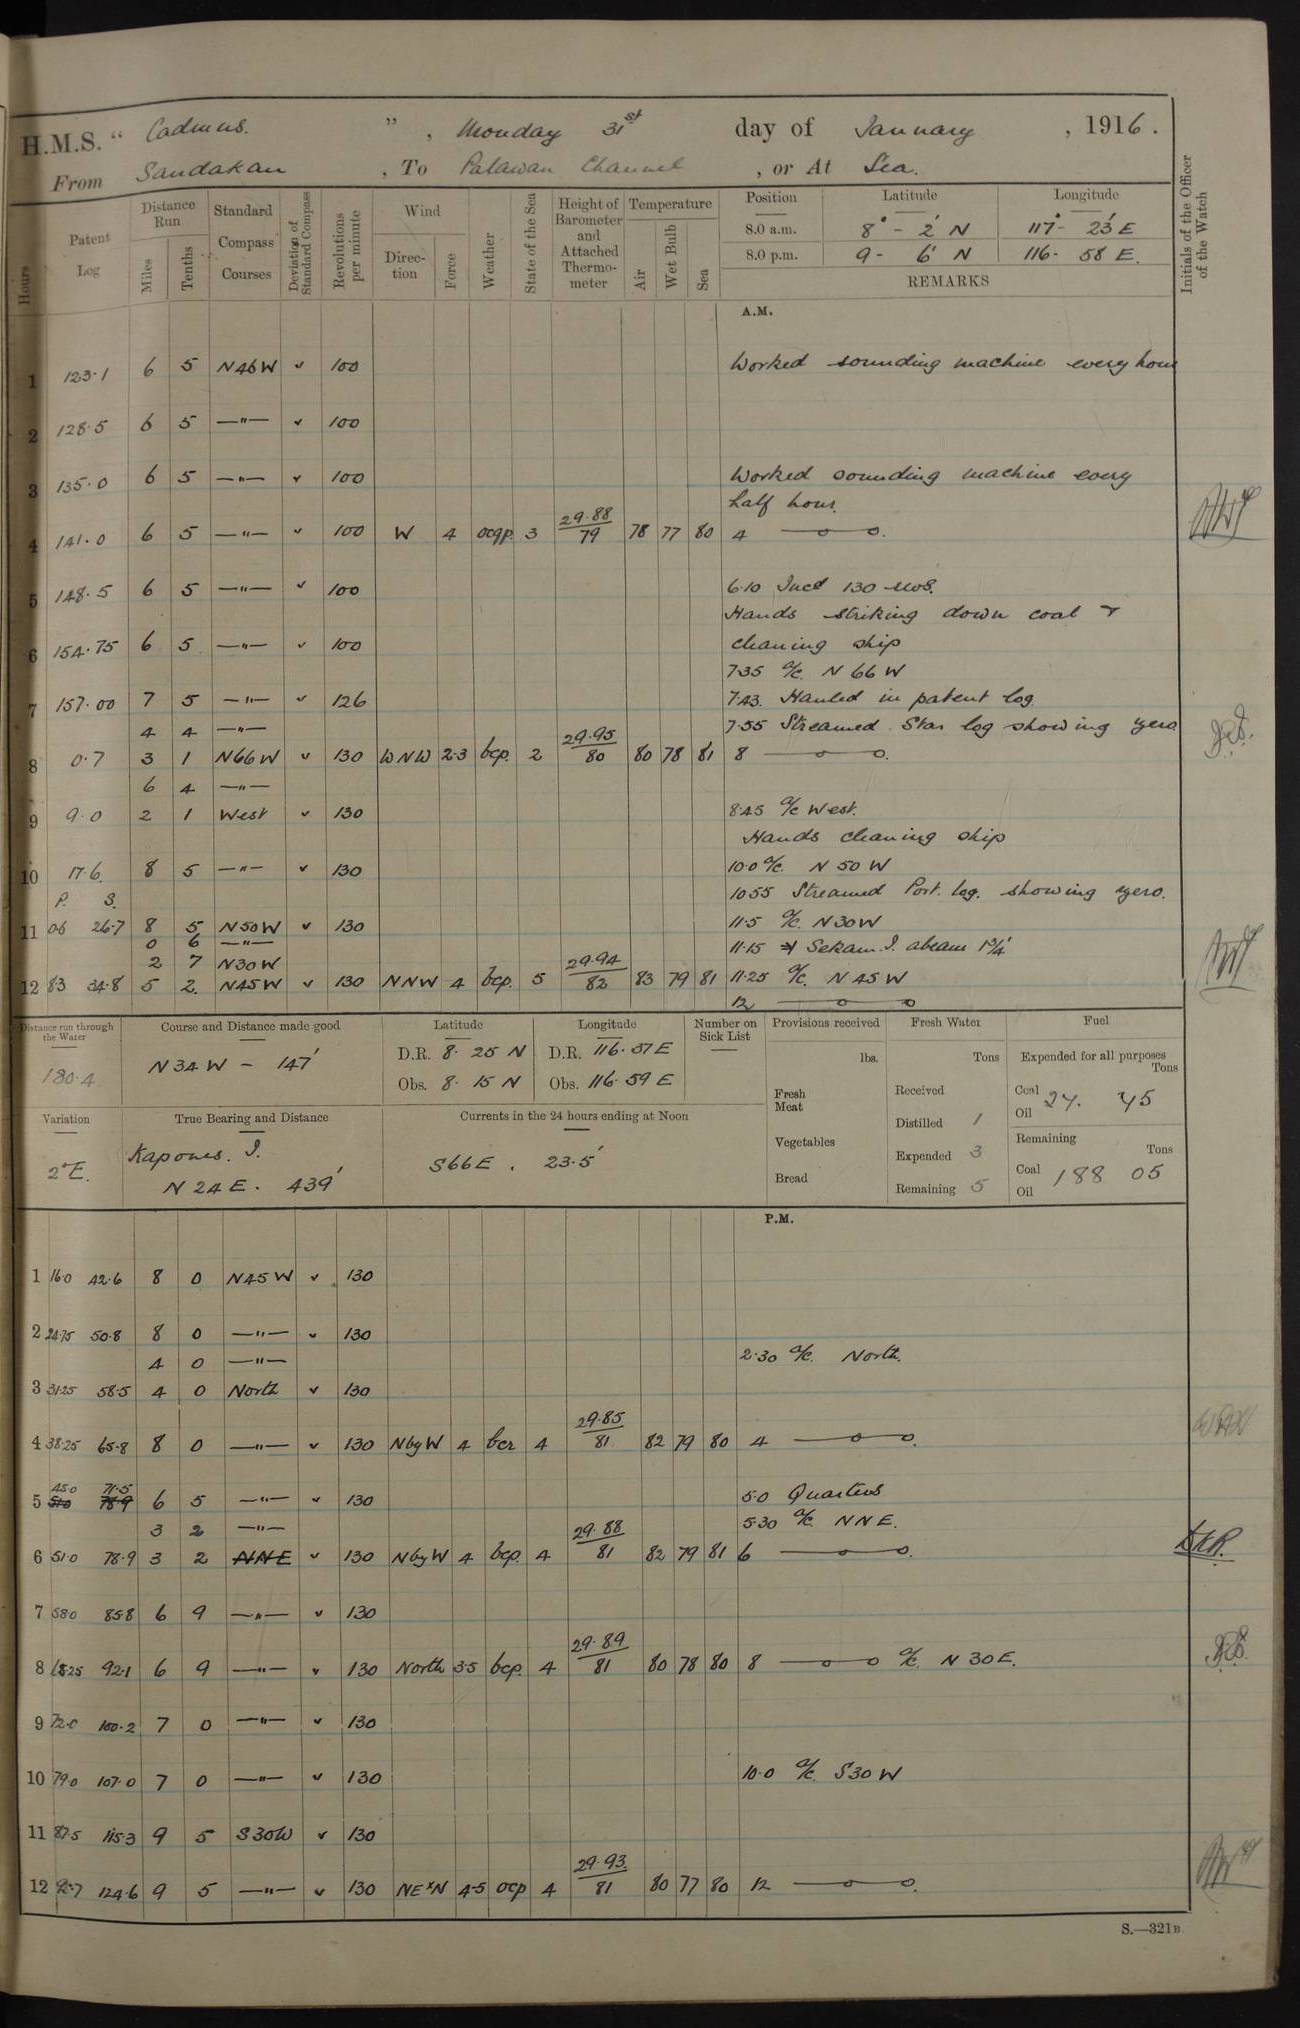 H.M.S. " Cadmus. ", Monday 31st day of January, 1916.
From Sandakan, To Palawan Channel, or At Sea.
Hours
Patent Log
Distance Run
Miles
Tenths
Standard Compass Courses
Deviation of Standard Compass
Revolutions per minute
Wind
Direction
Force
Weather
State of the Sea
Height of Barometer and Attached Thermometer
Temperature
Air
Wet Bulb
Sea
Position Latitude Longitude
8.0 a.m. 8° - 2' N 117° - 23' E
8.0 p.m. 9 - 6' N 116 - 58 E.
REMARKS
Initials of the Officer of the Watch
A.M.
1 123.1 6 5 N46W ✓ 100 Worked sounding machine every hour
2 128.5 6 5 —"— ✓ 100
3 135.0 6 5 —"— ✓ 100 Worked sounding machine every
half hour.
4 141.0 6 5 —"— ✓ 100 W 4 ocqp. 3 29.88/79 78 77 80 4
5 148.5 6 5 —"— ✓ 100 6.10 Incd 130 revs.
Hands striking down coal &
6 154.75 6 5 —"— ✓ 100 cleaning ship
7.35 a/c. N 66 W
7 157.00 7 5 —"— ✓ 126 7.43. Hauled in patent log
4 4 —"— 7.55 Streamed Star log showing zero
8 0.7 3 1 N66W ✓ 130 WNW 2.3 bcp. 2 29.95/80 80 78 81 8
6 4 —"—
9 9.0 2 1 West ✓ 130 8.45 a/c West.
Hands cleaning ship
10 17.6 8 5 —"— ✓ 130 10.0 a/c. N 50 W
P. S. 10.55 Streamed Port. log. showing zero.
11 0.6 26.7 8 5 N50W ✓ 130 11.5 a/c. N30W
0 6 —"— 11.15 Sekam. I. abeam 1¾'
2 7 N30W
12 8.3 34.8 5 2. N45W ✓ 130 NNW 4 bcp. 5 29.94/82 83 79 81 11.25 a/c. N 45 W
12
Distance run through the Water
180.4
Course and Distance made good
N 34 W - 147'
Latitude
D.R. 8. 25 N
Obs. 8. 15 N
Longitude
D.R. 116. 37 E
Obs. 116. 59 E
Number on Sick List
Provisions received
lbs.
Fresh Meat
Vegetables
Bread
Fresh Water
Tons
Received
Distilled 1
Expended 3
Remaining 5
Fuel
Expended for all purposes
Tons
Coal
Oil 27. 45
Remaining
Tons
Coal
Oil 188 05
Variation
2°E.
True Bearing and Distance
Kapones. I.
N 24 E. 439'
Currents in the 24 hours ending at Noon
S66E. 23.5'
P.M.
1 16.0 42.6 8 0 N45W ✓ 130
2 24.75 50.8 8 0 —"— ✓ 130
4 0 —"— 2.30 a/c. North.
3 31.25 58.5 4 0 North ✓ 130
4 38.25 65.8 8 0 —"— ✓ 130 NbyW 4 bcr 4 29.85/81 82 79 80 4
45.0 71.5
5 51.0 78.9 6 5 —"— ✓ 130 5.0 Quarters
3 2 —"— 5.30 a/c. NNE.
6 51.0 78.9 3 2 NNE ✓ 130 NbyW 4 bcp. 4 29.88/81 82 79 81 6 DKR.
7 58.0 85.8 6 9 —"— ✓ 130
8 65.25 92.1 6 9 —"— ✓ 130 North 3.5 bcp. 4 29.89/81 80 78 80 8 a/c. N 30 E.
9 72.0 100.2 7 0 —"— ✓ 130
10 79.0 107.0 7 0 —"— ✓ 130 10.0 a/c. S30 W
11 87.5 115.3 9 5 S30W ✓ 130
12 124.6 9 5 —"— ✓ 130 NExN 4.5 ocp 4 29.93/81 80 77 80 12
S.—321B.